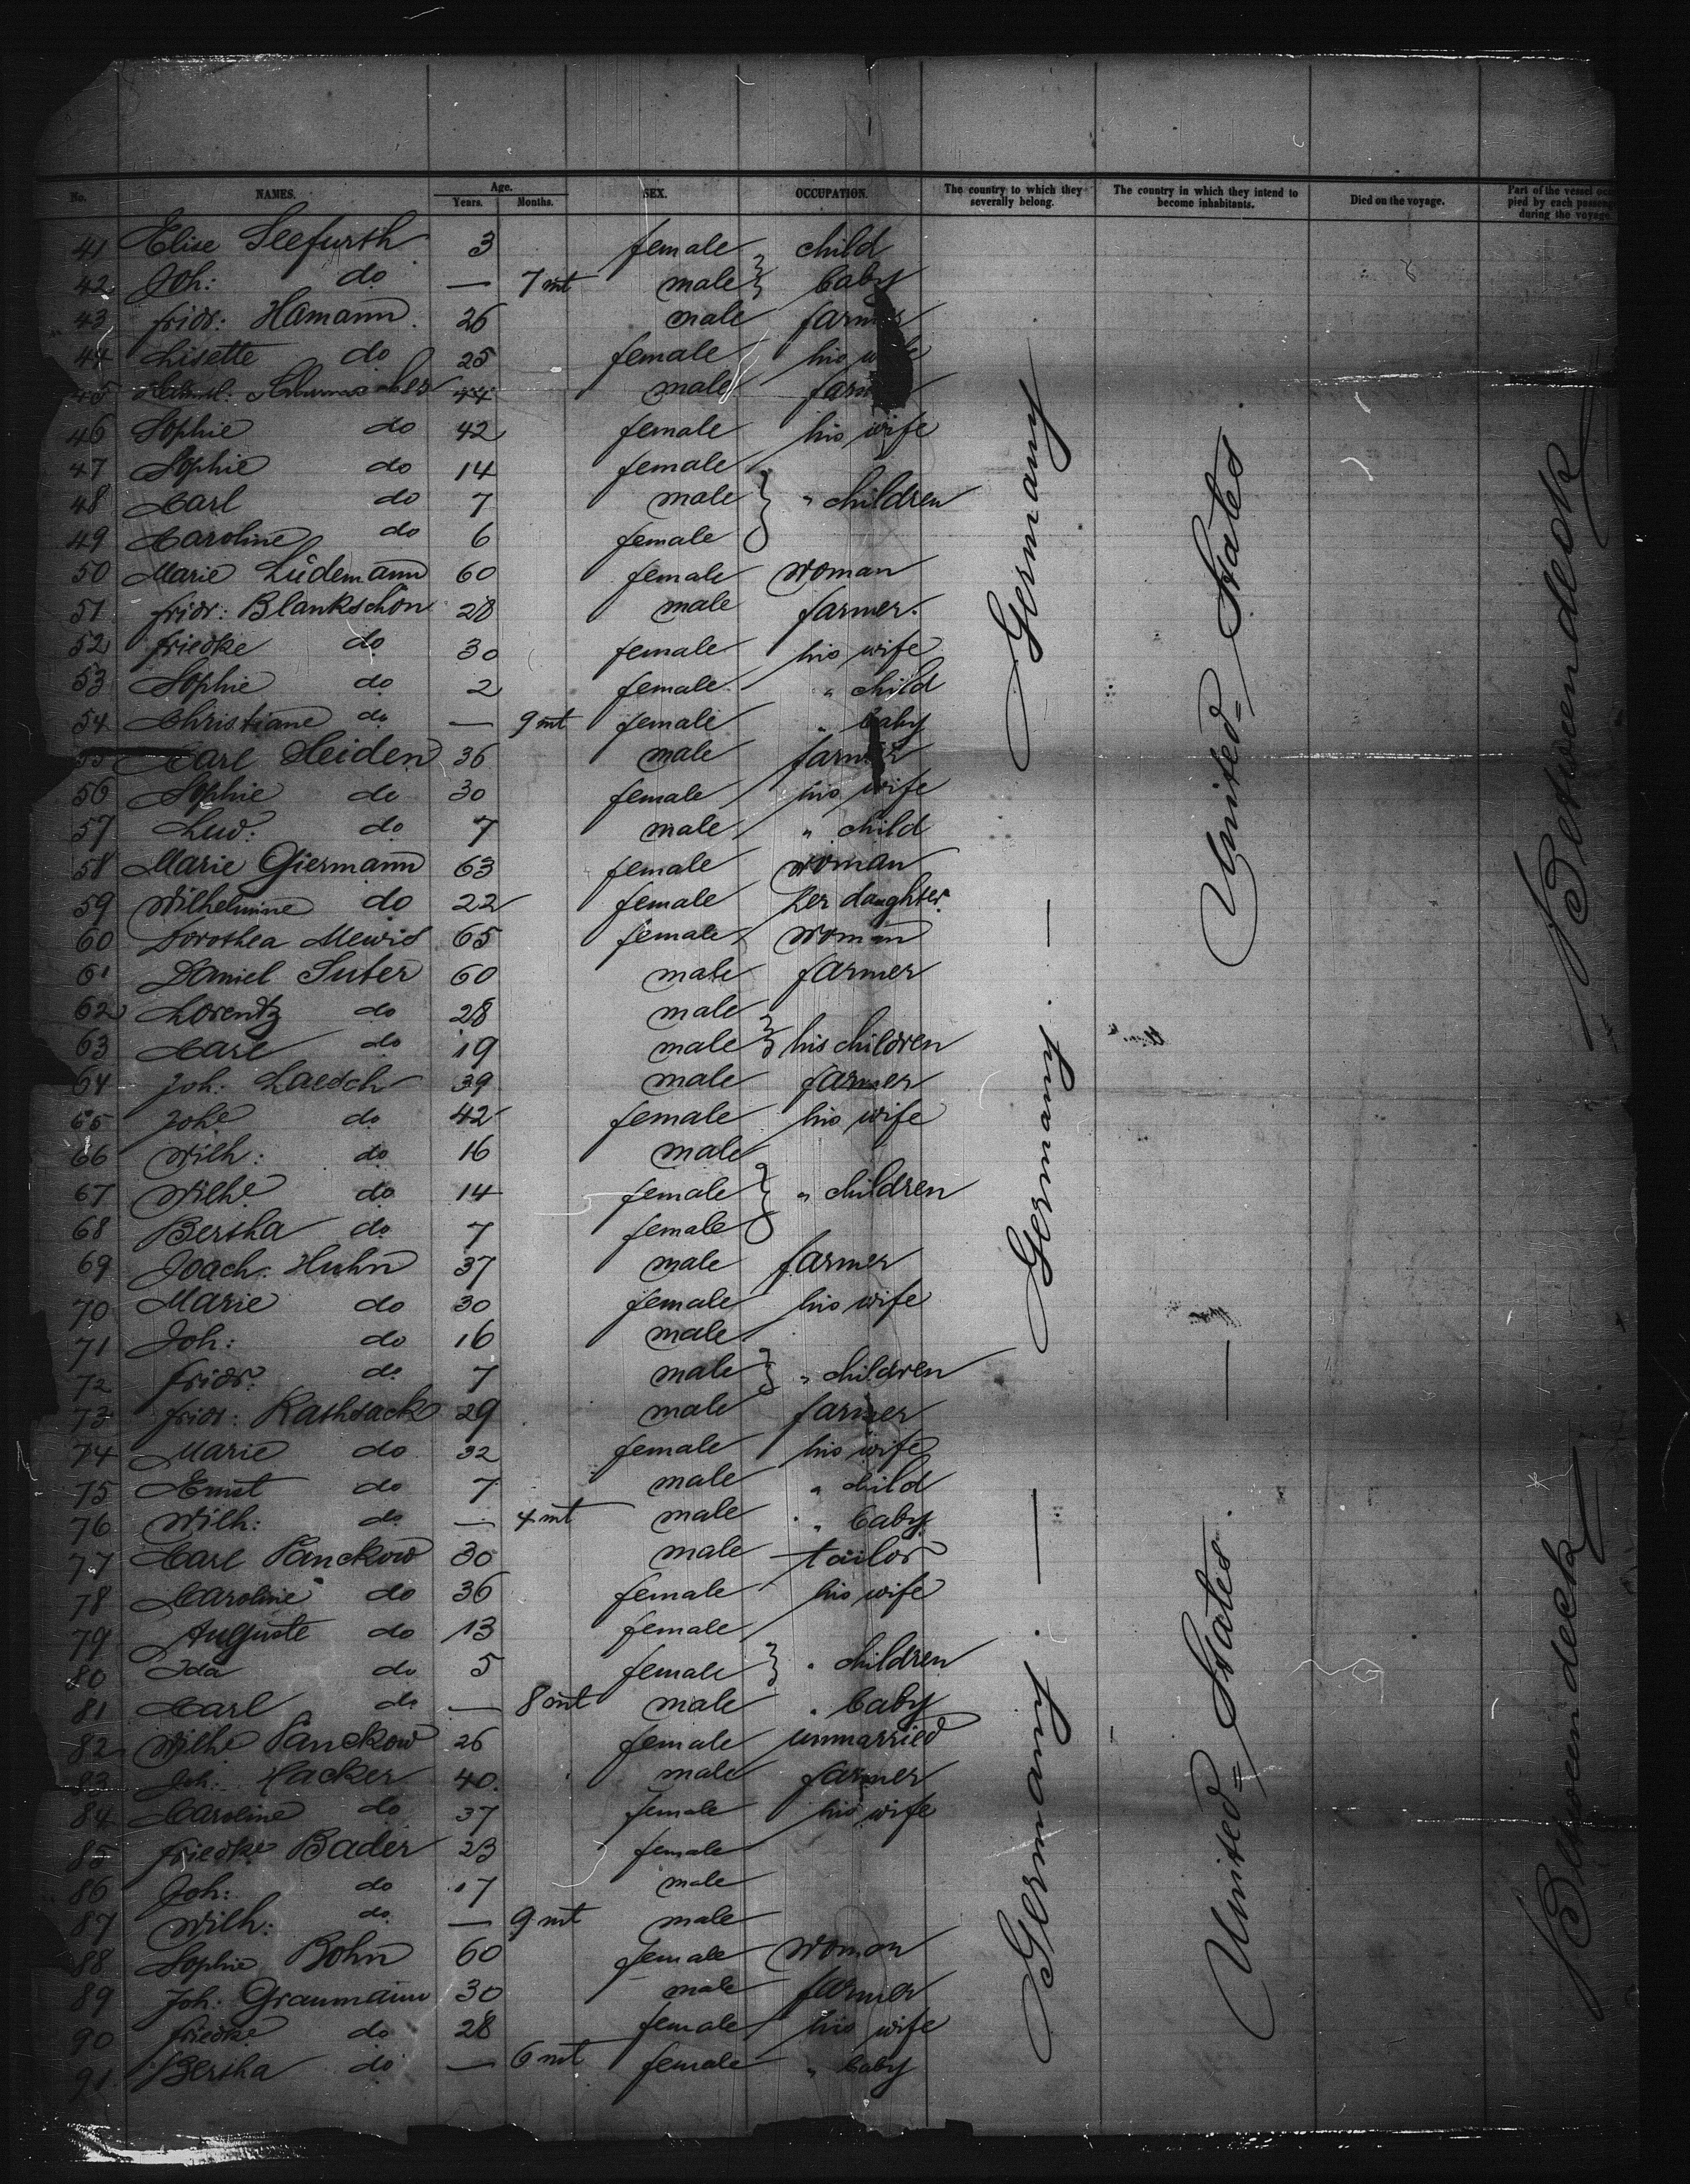 No. NAMES. Age. SEX. OCCUPATION. The country to which they severally belong. The country in which they intend to become inhabitants. Died on the voyage. Part of the vessel occupied by each passenger during the voyage.
Years. Months.
41 Elise Seefurth 3 female child
42 Joh: do — 7 mt male } baby
43 fridr: Hamann 26 male farmer
44 Lisette do 25 female his wife
45 44 male farmer
46 Sophie do 42 female his wife
47 Sophie do 14 female
48 Carl do 7 male } " children
49 Caroline do 6 female
50 Marie Lüdemann 60 female woman
51 fridr: Blankschön 28 male farmer.
52 friedke do 30 female his wife
53 Sophie do 2 female " child
54 Christiane do — 9 mt female " baby
55 Carl Heiden 36 male farmer
56 Sophie do 30 female his wife
57 Lud: do 7 male " child
58 Marie Giermann 63 female woman
59 Wilhelmine do 22 female her daughter
60 Dorothea Mewis 65 female woman
61 Daniel Suter 60 male farmer
62 Lorentz do 28 male
63 Carl do 19 male } his children
64 Joh: Laesch 39 male farmer
65 Johe do 42 female his wife
66 Wilh: do 16 male
67 Wilhe do 14 female } " children
68 Bertha do 7 female
69 Joach: Huhn 37 male farmer
70 Marie do 30 female his wife
71 Joh: do 16 male
72 fridr: do 7 male } " children
73 fridr: Rathsack 29 male farmer
74 Marie do 32 female his wife
75 Ernst do 7 male " child
76 Wilh: do — 4 mt male " baby
77 Carl Panckow 30 male tailor
78 Caroline do 36 female his wife
79 Auguste do 13 female
80 Ida do 5 female } " children
81 Carl do — 8 mt male " baby
82 Wilhe Panckow 26 female unmarried
83 Joh: Hacker 40 male farmer
84 Caroline do 37 female his wife
85 friedke Bader 23 female
86 Joh: do 17 male
87 Wilh: do — 9 mt male
88 Sophie Bohn 60 female woman
89 Joh: Graumann 30 male farmer
90 friedke do 28 female his wife
91 Bertha do — 6 mt female " baby
Germany. — Germany. — Germany.
United = States — United = States.
Between deck
Between deck